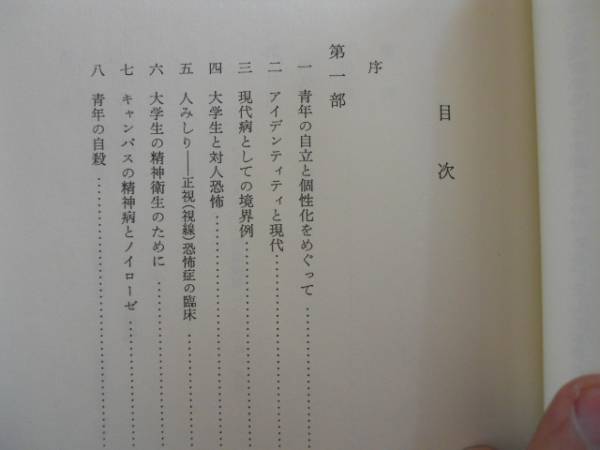 目次
序
第一部
一 青年の自立と個性化をめぐって……………………
二 アイデンティティと現代……………………
三 現代病としての境界例……………………
四 大学生と対人恐怖……………………
五 人みしり――正視(視線)恐怖症の臨床……………………
六 大学生の精神衛生のために……………………
七 キャンパスの精神病とノイローゼ……………………
八 青年の自殺……………………